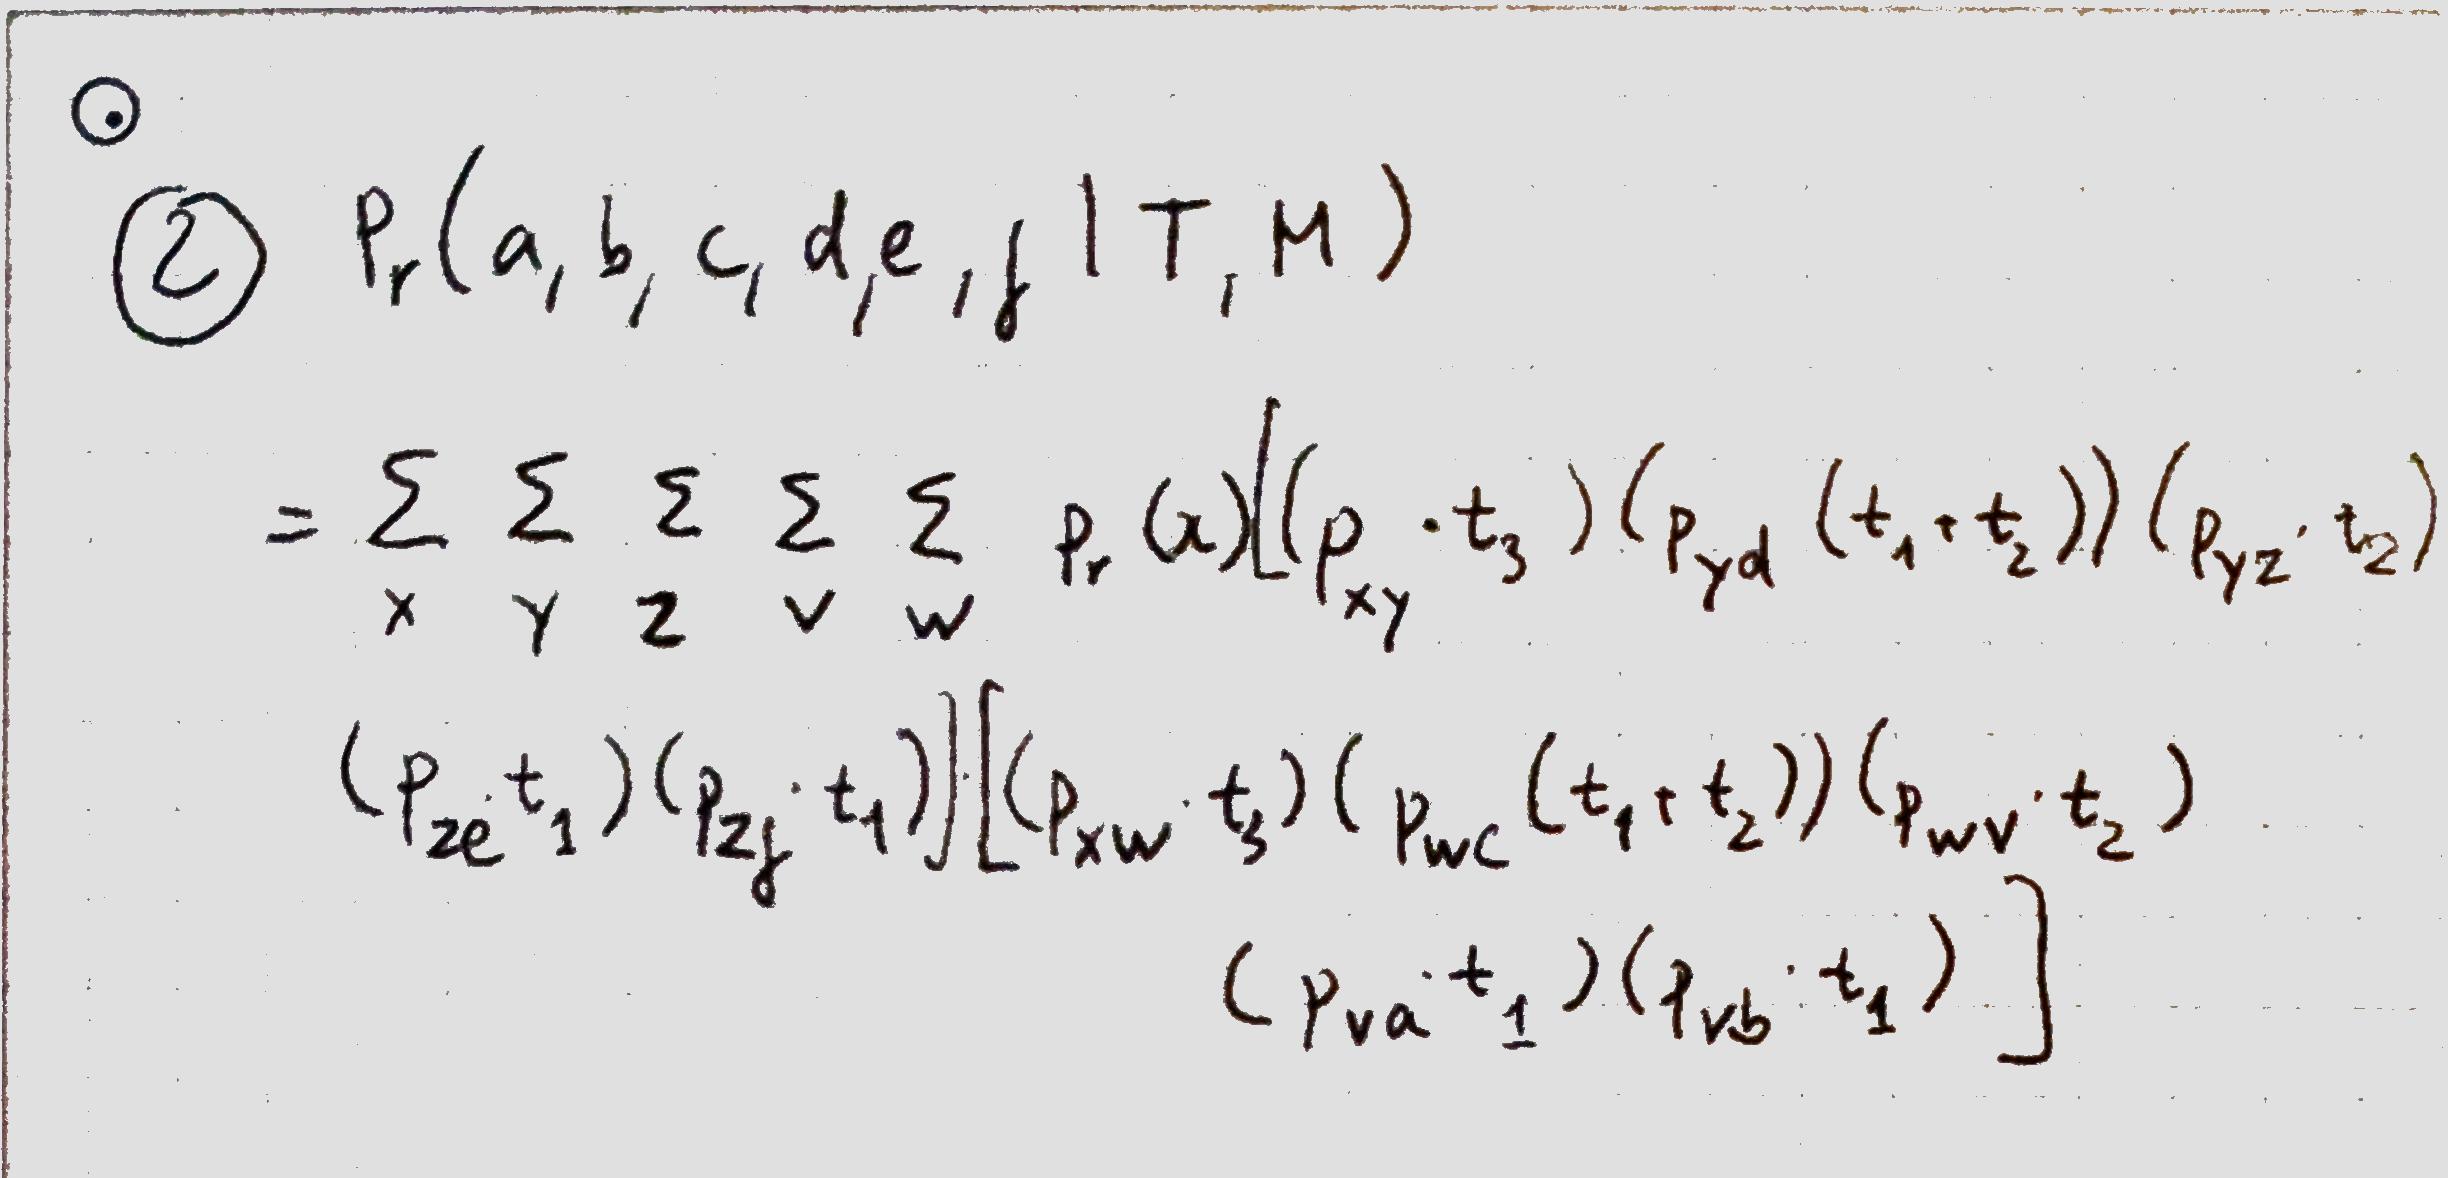 ② Pr(a, b, c, d, e, f | T, M)
= Σ_x Σ_y Σ_z Σ_v Σ_w Pr(x)[(p_xy · t_3)(p_yd (t_1 + t_2))(p_yz · t_2)
(p_ze · t_1)(p_zf · t_1)]·[(p_xw · t_3)(p_wc (t_1 + t_2))(p_wv · t_2)
(p_va · t_1)(p_vb · t_1)]